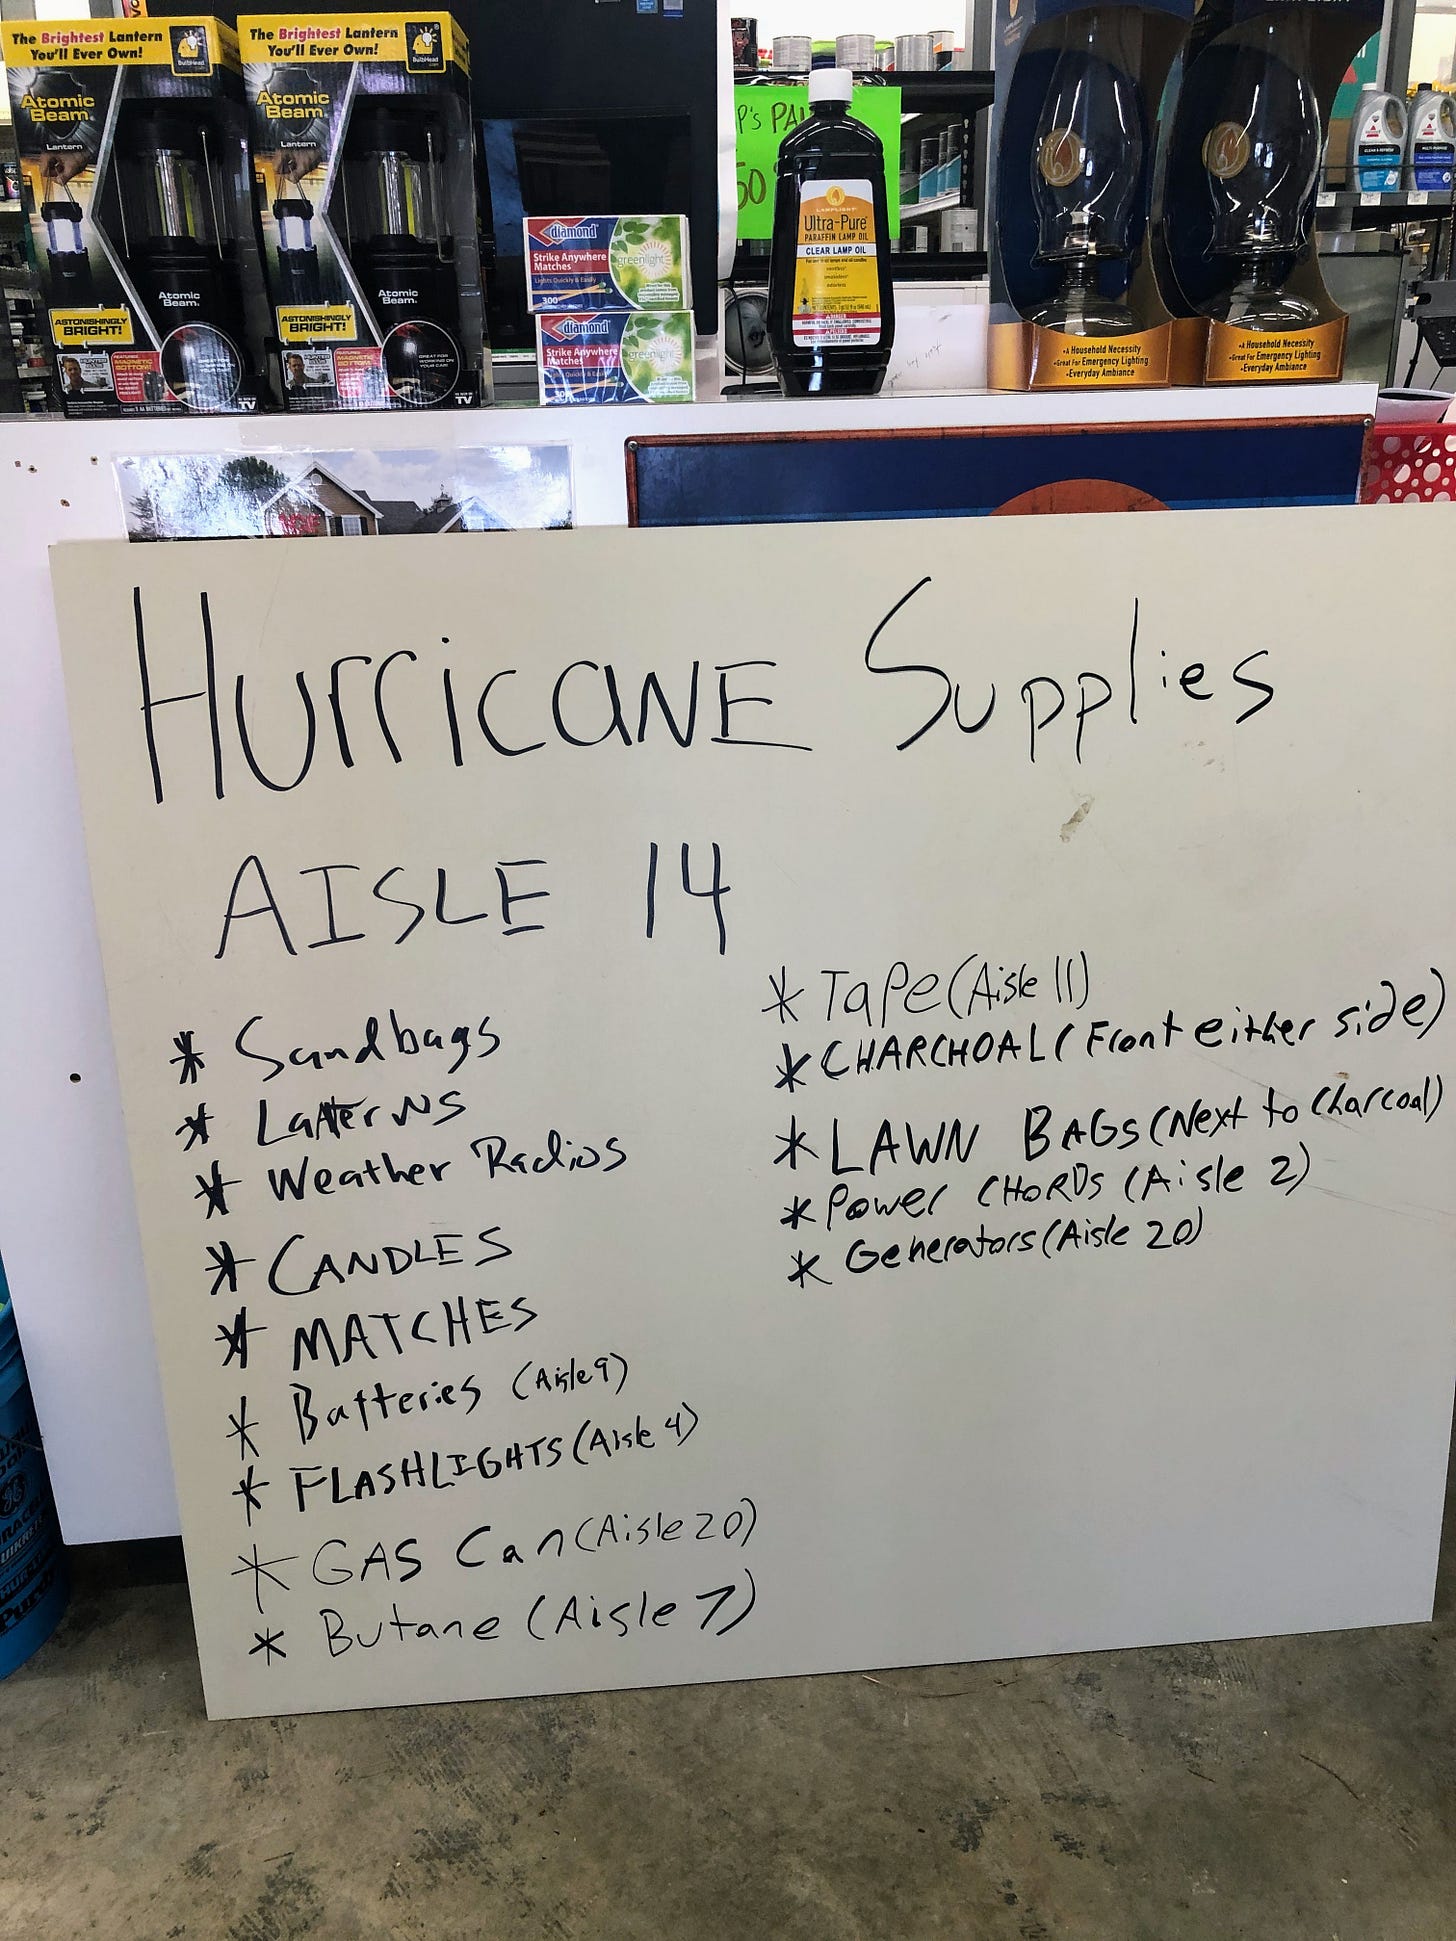 The Brightest Lantern
You'll Ever Own!
BulbHead
Atomic
Beam
Lantern
Atomic
Beam
ASTONISHINGLY
BRIGHT!
MAGNETIC
BOTTOM!
GREAT FOR
WORKING ON
YOUR CAR!
TV
The Brightest Lantern
You'll Ever Own!
BulbHead
Atomic
Beam
Lantern
Atomic
Beam
ASTONISHINGLY
BRIGHT!
MAGNETIC
BOTTOM!
GREAT FOR
WORKING ON
YOUR CAR!
TV
diamond
Strike Anywhere
Matches
Lights Quickly & Easily
300
greenlight
diamond
Strike Anywhere
Matches
greenlight
P's PA
50
LAMPLIGHT
Ultra-Pure
PARAFFIN LAMP OIL
CLEAR LAMP OIL
DANGER
•A Household Necessity
•Great For Emergency Lighting
•Everyday Ambiance
•A Household Necessity
•Great For Emergency Lighting
•Everyday Ambiance
BISSELL
BISSELL
HurricaNE Supplies
AISLE 14
* Sandbags
* LaNterNS
* Weather Radios
* CANDLES
* MATCHES
* Batteries (Aisle 9)
* FLASHLIGHTS (Aisle 4)
* GAS Can (Aisle 20)
* Butane (Aisle 7)
* Tape (Aisle 11)
* CHARCHOAL (Front either side)
* LAWN BAGS (Next to Charcoal)
* Power CHORDS (Aisle 2)
* Generators (Aisle 20)
Purdy